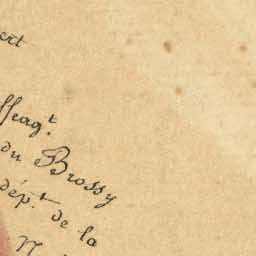 ert
ffrag.t
du Brossy
dép.t de la
N